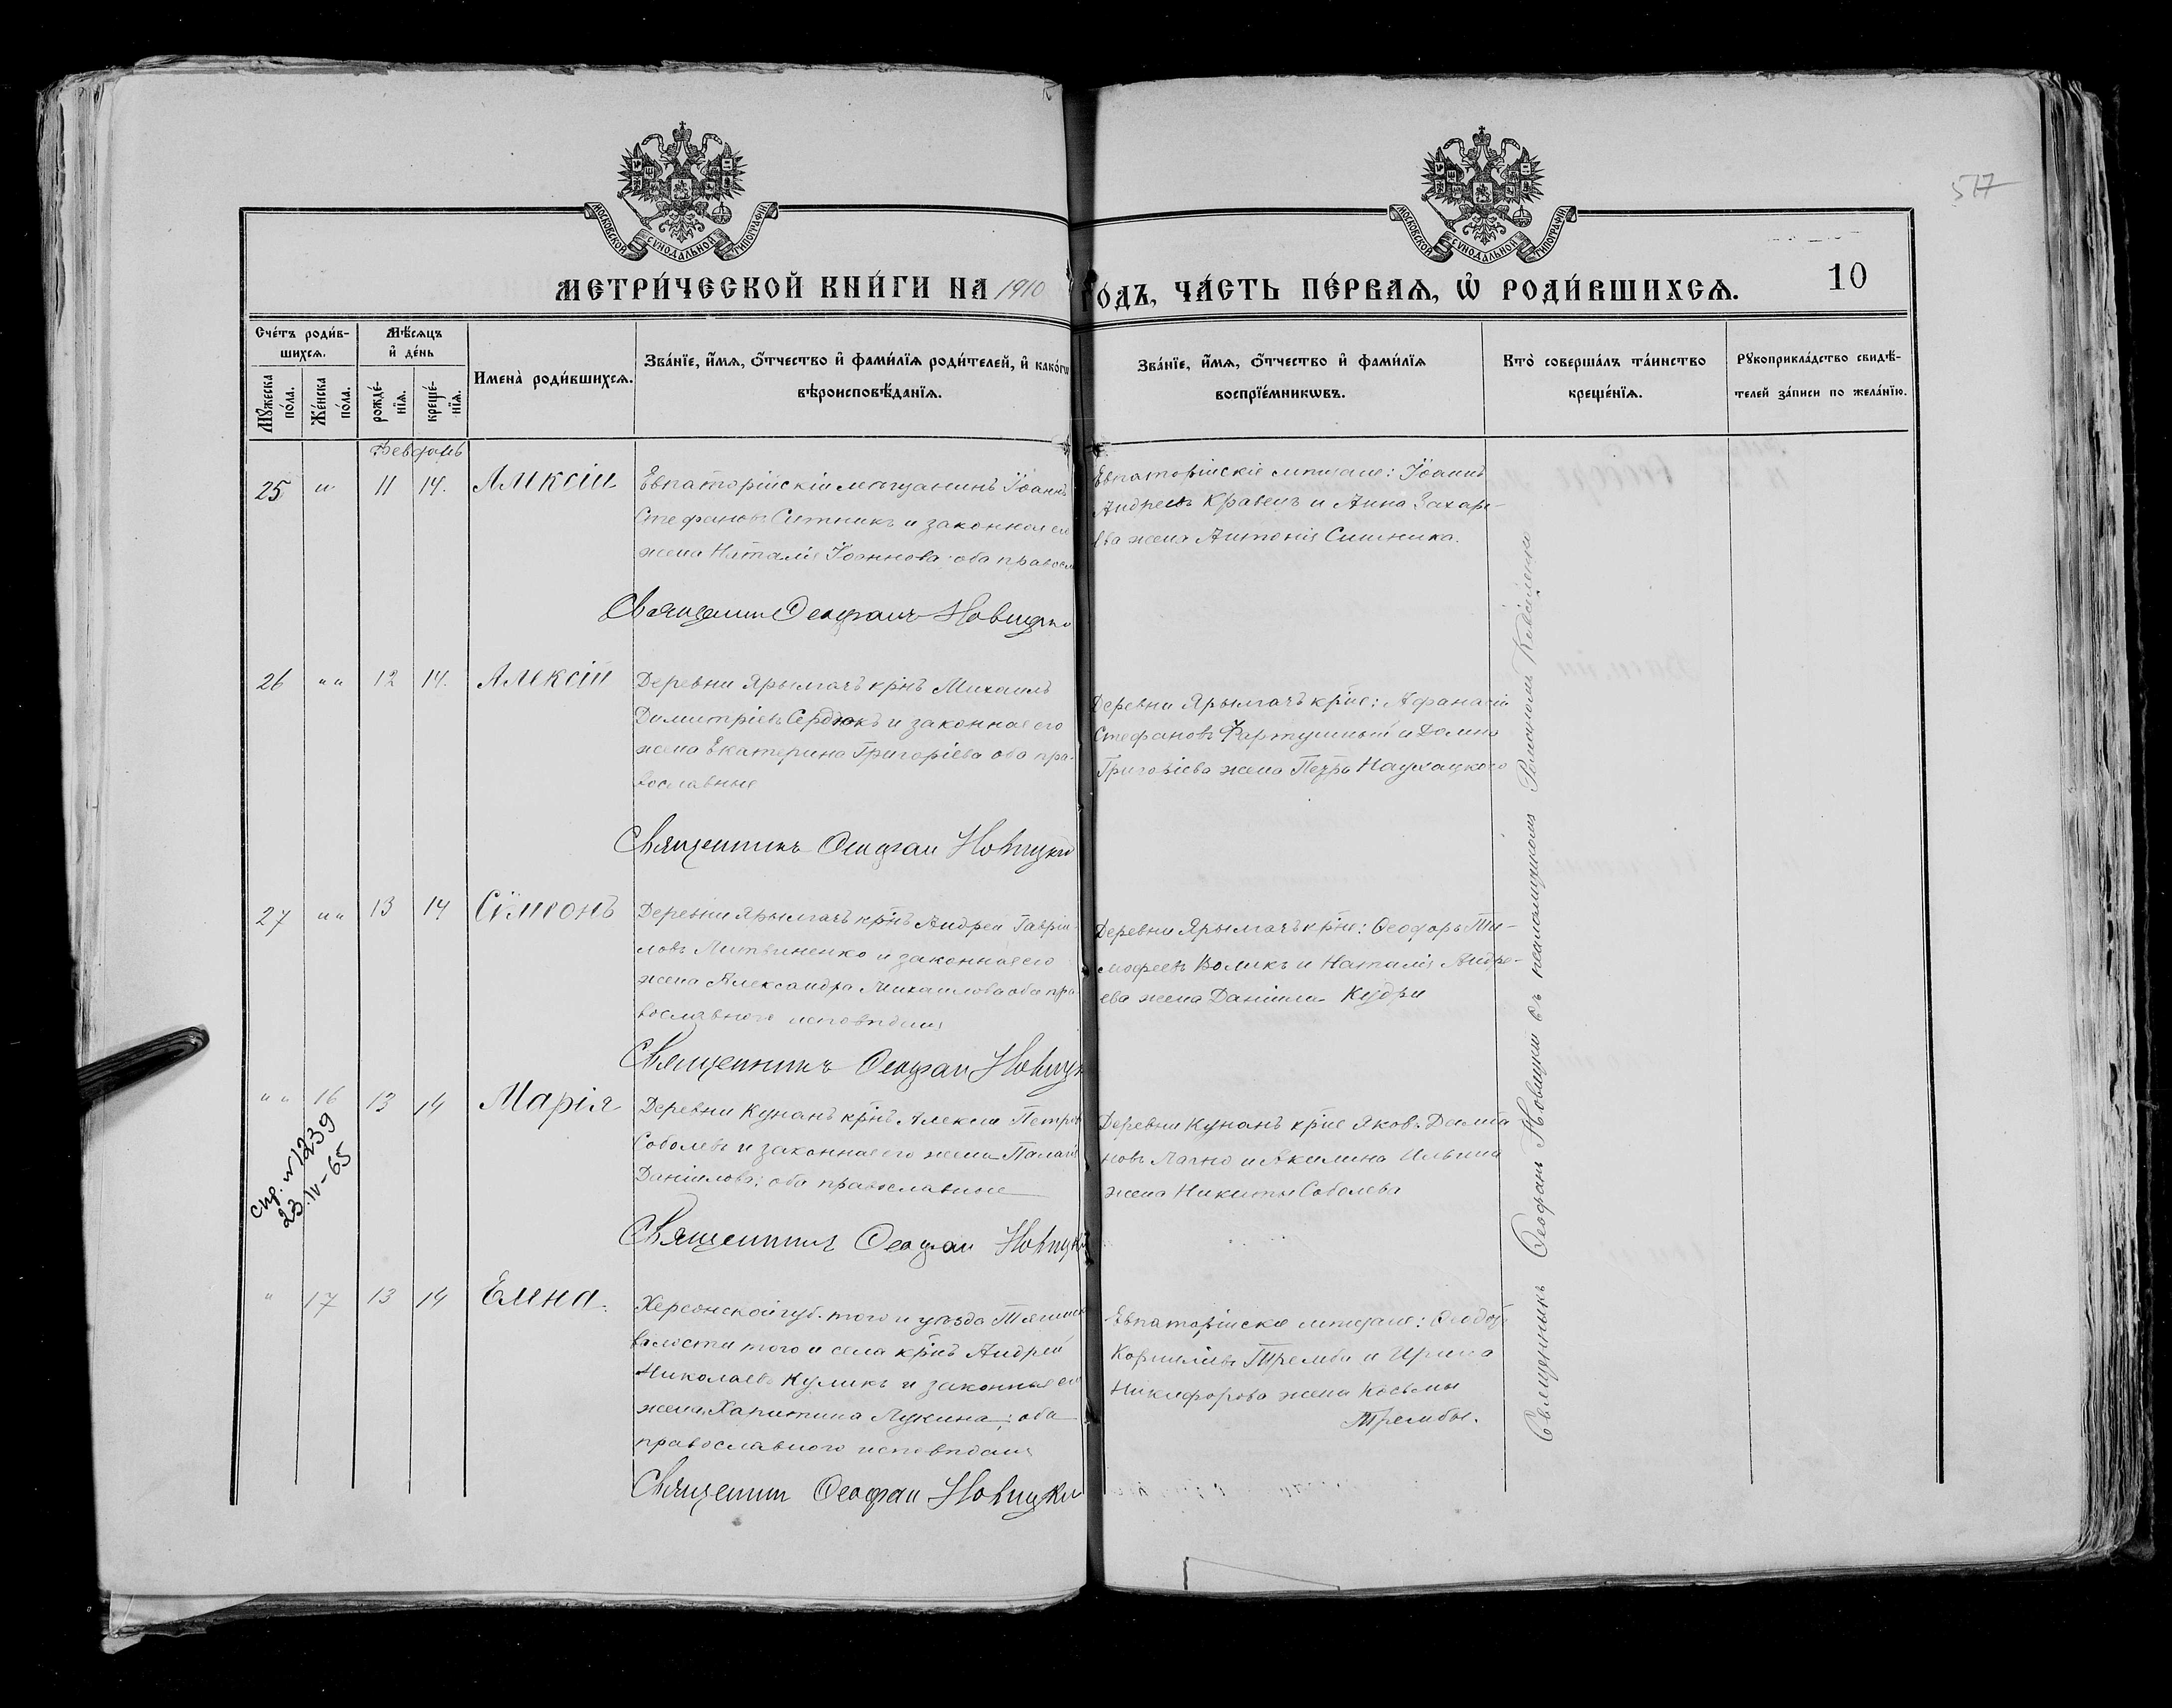 МОСКОВСКОЙ СѴНОДАЛЬНОЙ ТИПОГРАФІИ
МОСКОВСКОЙ СѴНОДАЛЬНОЙ ТИПОГРАФІИ
517
МЕТРИ́ЧЕСКОЙ КНИ́ГИ НА 1910 ГО́ДЪ, ЧА́СТЬ ПЕ́РВАЯ, Ѡ҆ РОДИ́ВШИХСЯ.
10
Сче́тъ роди́в-
шихся.
Мѣ́сяцъ
и҆ де́нь
Мꙋ́жеска
по́ла.
Же́нска
по́ла.
рожде́-
нїя.
креще́-
нїя.
Имена̀ роди́вшихся.
Зва́нїе, и҆́мя, о҆́тчество и҆ фами́лїя роди́телей, и҆ како́гѡ
вѣроисповѣ́данїя.
Зва́нїе, и҆́мя, о҆́тчество и҆ фами́лїя
воспрїе́мникѡвъ.
Кто̀ соверша́лъ та́инство
креще́нїя.
Рꙋкоприкла́дство свидѣ́-
телей за́писи по жела́нїю.
Февраль
25 " 11 14. Алексій
Евпаторійскій мѣщанинъ Іоаннъ
Стефановъ Ситникъ и законная его
жена Наталія Іоаннова оба правосл
Священникъ Ѳеофанъ Новицкі
Евпаторійскіе мѣщане: Іоаннъ
Андреевъ Кравецъ и Анна Захарі-
ева жена Антонія Ситника.
26 " " 12 14. Алексій
Деревни Ярылгачъ крнъ Михаилъ
Димитріевъ Сердюкъ и законная его
жена Екатерина Григоріева оба пра-
вославные
Священникъ Ѳеофан Новицкій
Деревни Ярылгачъ крне: Афанасій
Стефановъ Фартушный и Домна
Григоріева жена Петра Наумацкого
27 " " 13 14 Сѵмеонъ
Деревни Ярылгачъ крнъ Андрей Гавріи-
ловъ Литвиненко и законная его
жена Александра Михаилова оба пра-
вославного исповѣданія
Священникъ Ѳеофан Новицк
Деревни Ярылгачъ крне: Ѳеодоръ Ти-
мофеевъ Воликъ и Наталія Андре-
ева жена Даніила Кудри
" " 16 13 14 Марія
Деревни Кунанъ крнъ Алексій Петров
Соболевъ и законная его жена Палагія
Даніилова; оба православные
Священникъ Ѳеофан Новицкій
Деревни Кунанъ крне Яковъ Даміа
новъ Лагно и Акилина Ильина
жена Никиты Соболева
спр. № 1239
23.IV-65
" 17 13 14 Елена.
Херсонской губ. того и уѣзда
волости того и села крнъ Андрей
Николаевъ Куликъ и законная его
жена Капитина Лукина; оба
православного исповѣданія
Священник Ѳеофан Новицкій
Евпаторійскіе мѣщане: Ѳеодоръ
Корниліевъ Трембa и Ирина
Никифорова жена Косьмы
Трембы.
Священникъ Ѳеофанъ Новицкій съ псаломщикомъ